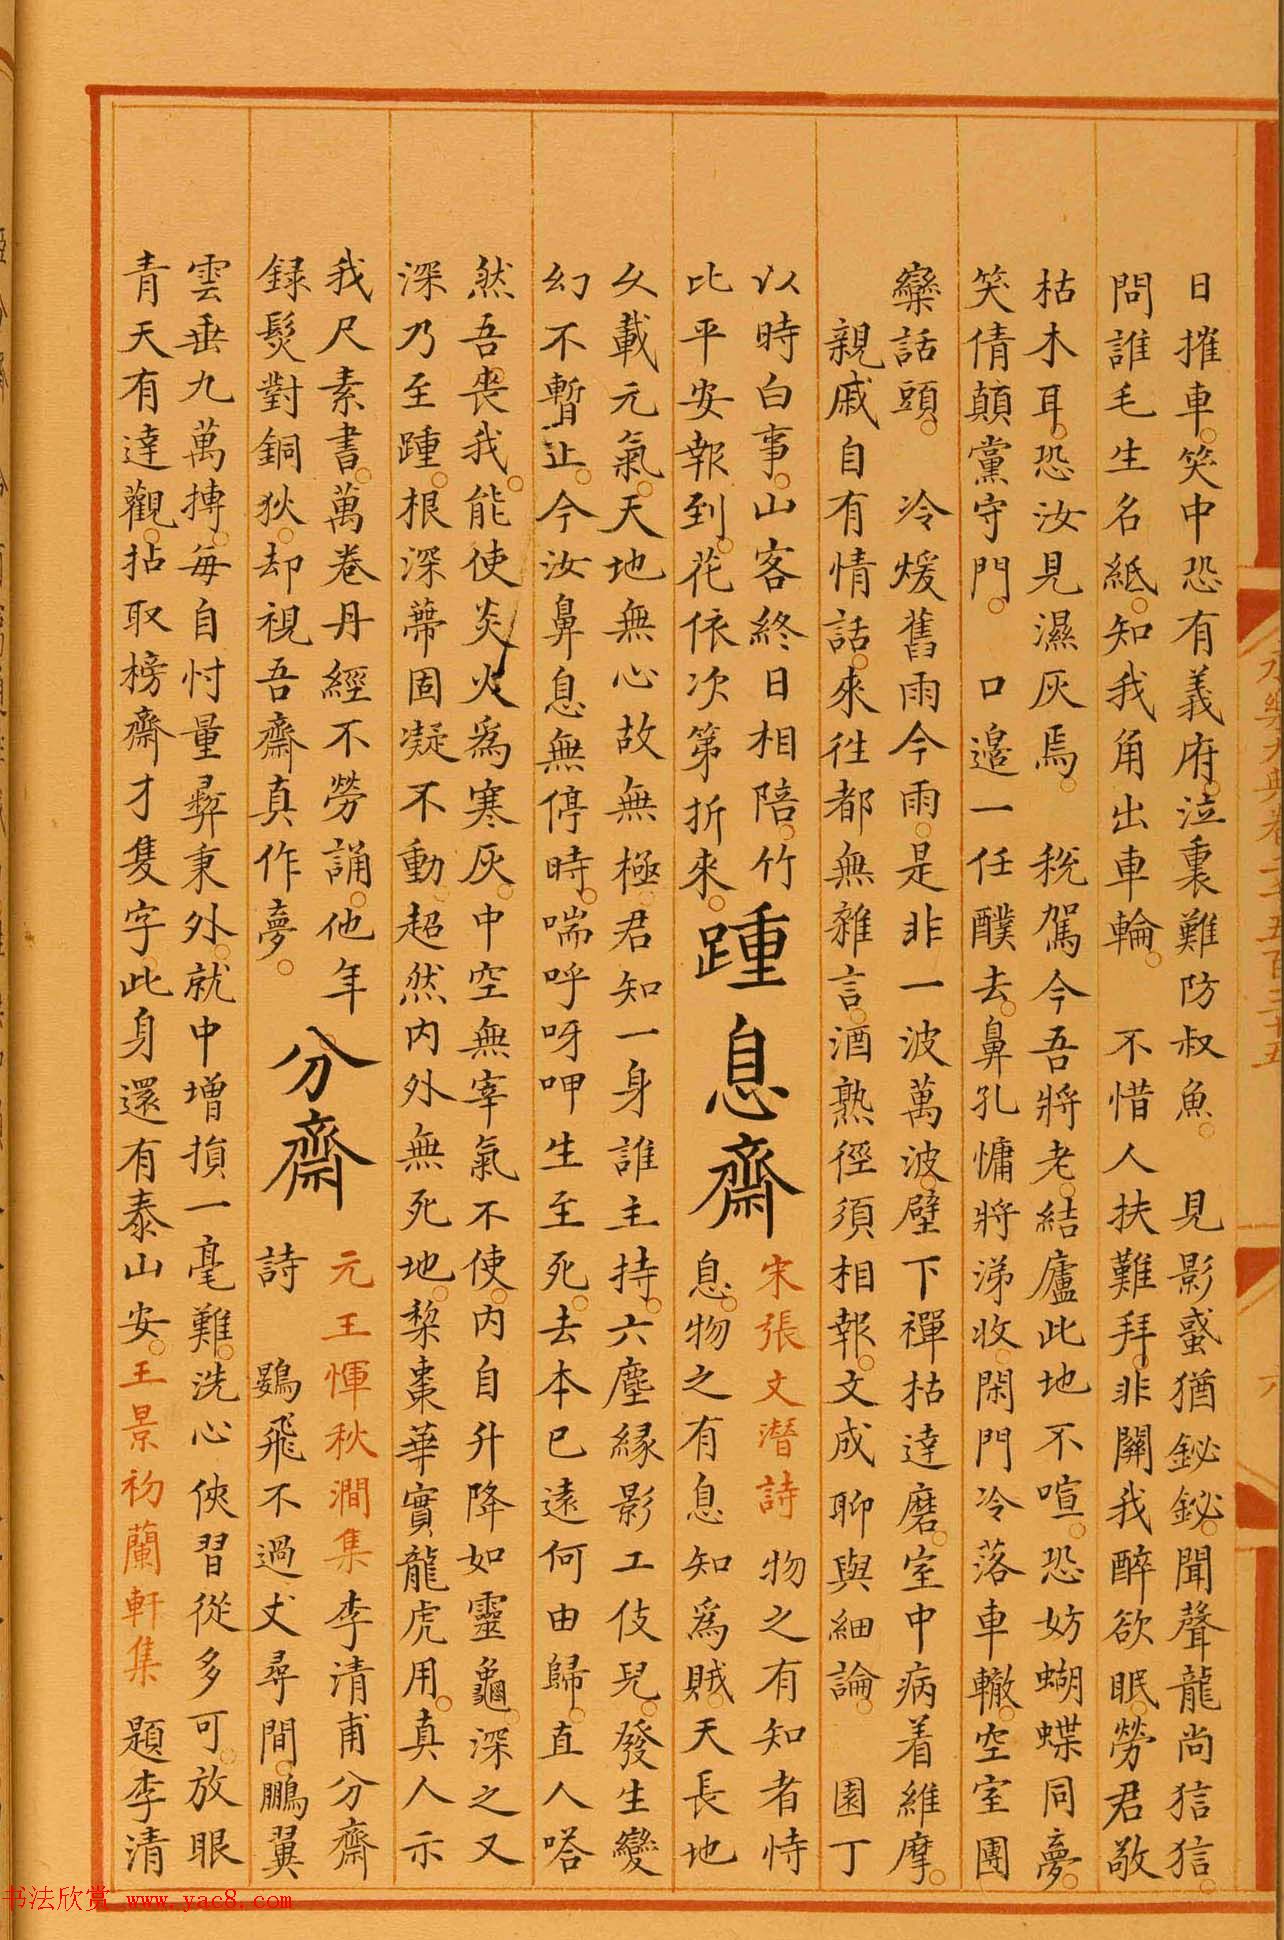 日摧車笑中恐有義府泣裏難防叔魚 見影蜮猶鉍鉍聞聲龍尚狺狺
問誰毛生名紙知我角出車輪 不惜人扶難拜非關我醉欲眠勞君敬
枯木耳恐汝見濕灰焉 稅駕今吾將老結廬此地不喧恐妨蝴蝶同夢
笑倩顛黨守門 口邉一任醭去鼻孔慵將涕收閑門冷落車轍空室團
欒話頭 冷煖舊雨今雨是非一波萬波壁下禪枯達磨室中病着維摩
親戚自有情話來徃都無雜言酒熟徑須相報文成聊與細論 園丁
以時白事山客終日相陪竹
比平安報到花依次第折來
踵息齋
宋張文潛詩 物之有知者恃
息物之有息知爲賊天長地
久載元氣天地無心故無極君知一身誰主持六塵縁影工伎兒發生變
幻不暫止今汝鼻息無停時喘呼呀呷生至死去本已遠何由歸直人嗒
然吾丧我能使炎火爲寒灰中空無宰氣不使内自升降如靈龜深之又
深乃至踵根深蔕固凝不動超然内外無死地棃棗華實龍虎用真人示
我尺素書萬卷丹經不勞誦他年
録髮對銅狄却視吾齋真作夢
分齋
元王惲秋澗集李清甫分齋
詩 鷃飛不過丈尋間鵬翼
雲垂九萬摶每自忖量彛秉外就中增損一毫難洗心俠習從多可放眼
青天有達觀拈取榜齋才隻字此身還有泰山安王景初蘭軒集 題李清
永樂大典卷二千五百三十五
六
书法欣赏 www.yac8.com